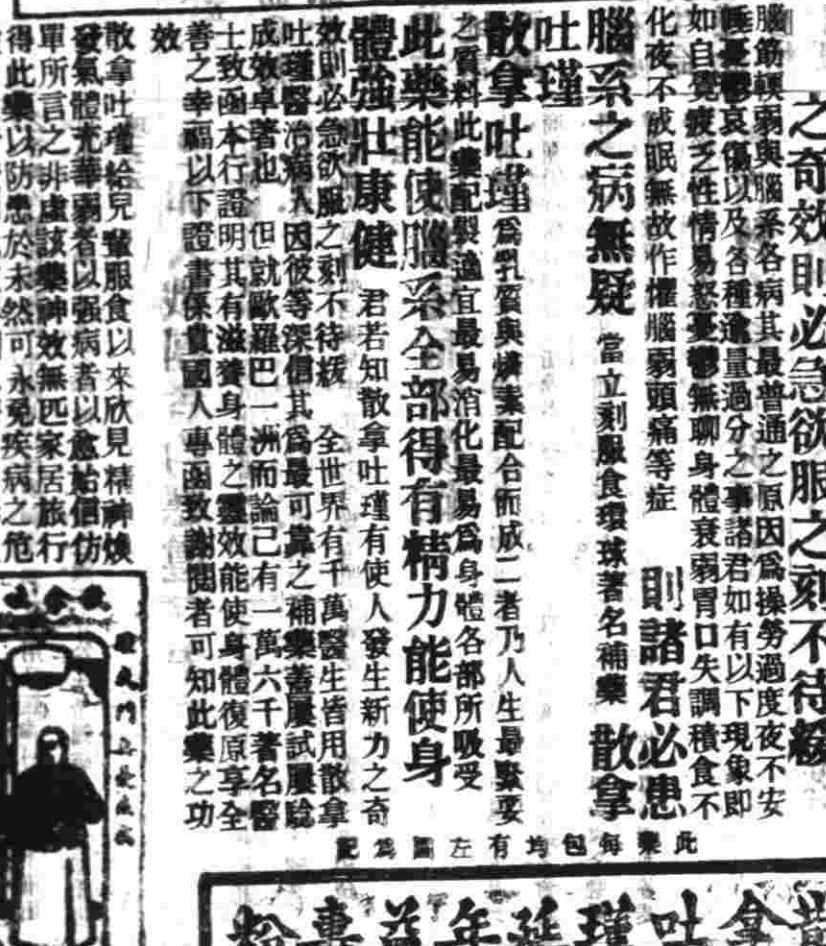 之奇效則必急欲服之刻不待緩
腦筋輭弱與腦系各病其最普通之原因爲操勞過度夜不安
睡憂鬱哀傷以及各種逾量過分之事諸君如有以下現象即
如自覺疲乏性情易怒憂鬱無聊身體衰弱胃口失調積食不
化夜不成眠無故作懼腦弱頭痛等症 則諸君必患
腦系之病無疑 當立刻服食環球著名補藥 散拿
吐瑾
散拿吐瑾爲乳質與燐素配合而成二者乃人生最緊要
之質料此藥配製適宜最易消化最易爲身體各部所吸受
此藥能使腦系全部得有精力能使身
體強壯康健 君若知散拿吐瑾有使人發生新力之奇
效則必急欲服之刻不待緩 全世界有千萬醫生皆用散拿
吐瑾醫治病人因彼等深信其爲最可靠之補藥蓋屢試屢騐
成效卓著也 但就歐羅巴一洲而論已有一萬六千著名醫
士致函本行證明其有滋養身體之靈效能使身體復原享全
善之幸福以下證書係貴國人專函致謝閱者可知此藥之功
效
散拿吐瑾給兒輩服食以來欣見精神煥
發氣體充華弱者以强病者以愈始信仿
單所言之非虛該藥神效無匹家居旅行
得此藥以防患於未然可永免疾病之危
此藥每包均有左圖爲記
拿吐瑾延年益壽粉